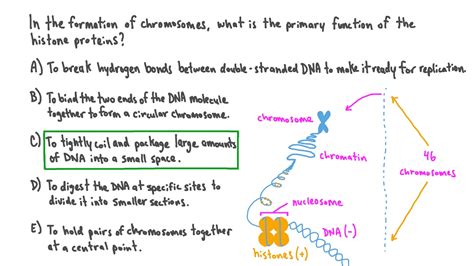 In the formation of chromosomes, what is the primary function of the
histone proteins?
A) To break hydrogen bonds between double-stranded DNA to make it ready for replication.
B) To bind the two ends of the DNA molecule
together to form a circular chromosome.
C) To tightly coil and package large amounts
of DNA into a small space.
D) To digest the DNA at specific sites to
divide it into smaller sections.
E) To hold pairs of chromosomes together
at a central point.
chromosome
chromatin
46
chromosomes
nucleosome
DNA (-)
histones (+)